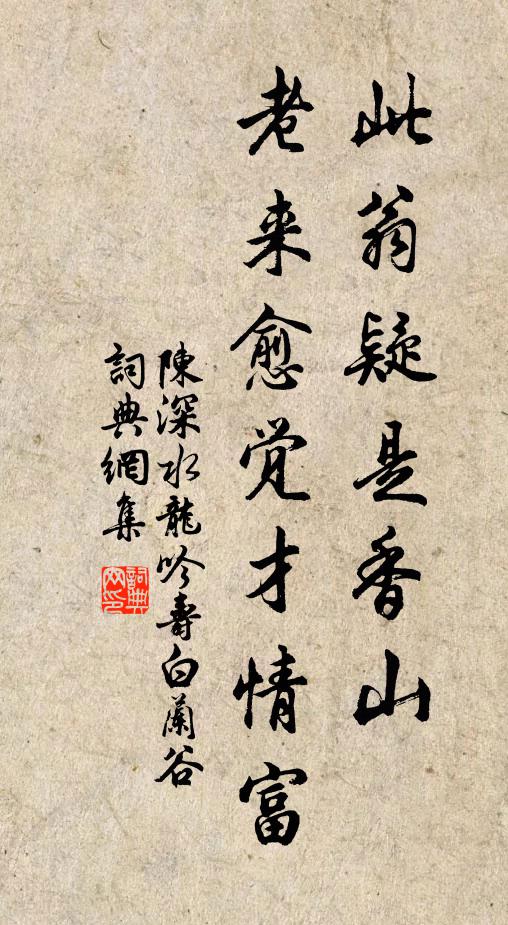 此翁疑是香山
老来愈觉才情富
陳深水龍吟壽白蘭谷
詞典網集
詞典網印